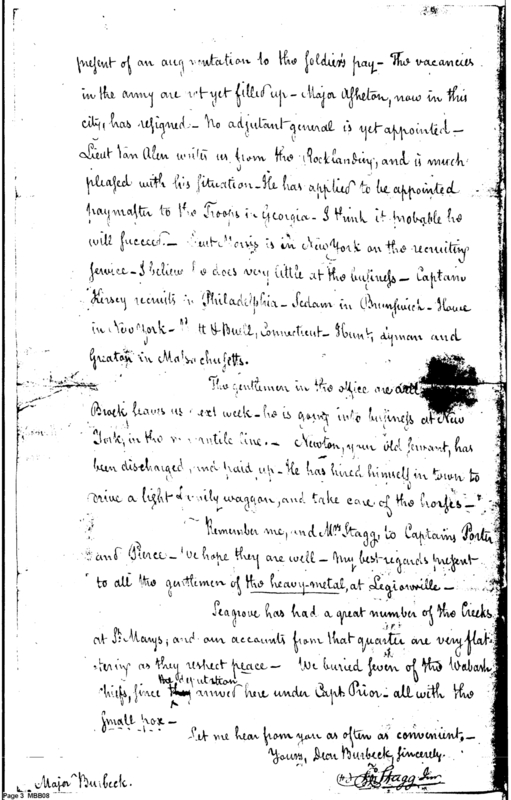 present of an augmentation to the soldier's pay - The vacancies
in the army are not yet filled up - Major Asheton, now in this
city, has resigned - No adjutant general is yet appointed -
Lieut Van Alen writes us from the Rocklanding, and is much
pleased with his situation - He has applied to be appointed
paymaster to the Troops in Georgia - I think it probable he
will succeed. - Lieut Morris is in New York on the recruiting
service - I believe he does very little at the business - Captain
Kersey recruits in Philadelphia - Sedam in Brunswick - Howe
in New York - & Buell, Connecticut - Hunt, Lyman and
Greaton in Massachusetts.
The gentlemen in the office are well
Brock leaves us next week - he is going into business at New
York, in the mercantile line. - Newton, your old servant, has
been discharged, and paid up - He has hired himself in town to
drive a light family waggon, and take care of the horses -
Remember me, and Mrs Stagg, to Captains Porter
and Pierce - We hope they are well - my best regards present
to all the gentlemen of the heavy metal, at Legionville -
Seagrove has had a great number of the Creeks
at St. Marys, and our accounts from that quarter are very flat
tering as they respect peace - We buried seven of the Wabash
chiefs, since the deputation arrived here under Capt Prior - all with the
small pox -
Let me hear from you as often as convenient, -
Yours, Dear Burbeck, sincerely.
Jno Stagg Jr
Major Burbeck.
Page 3 MBB08